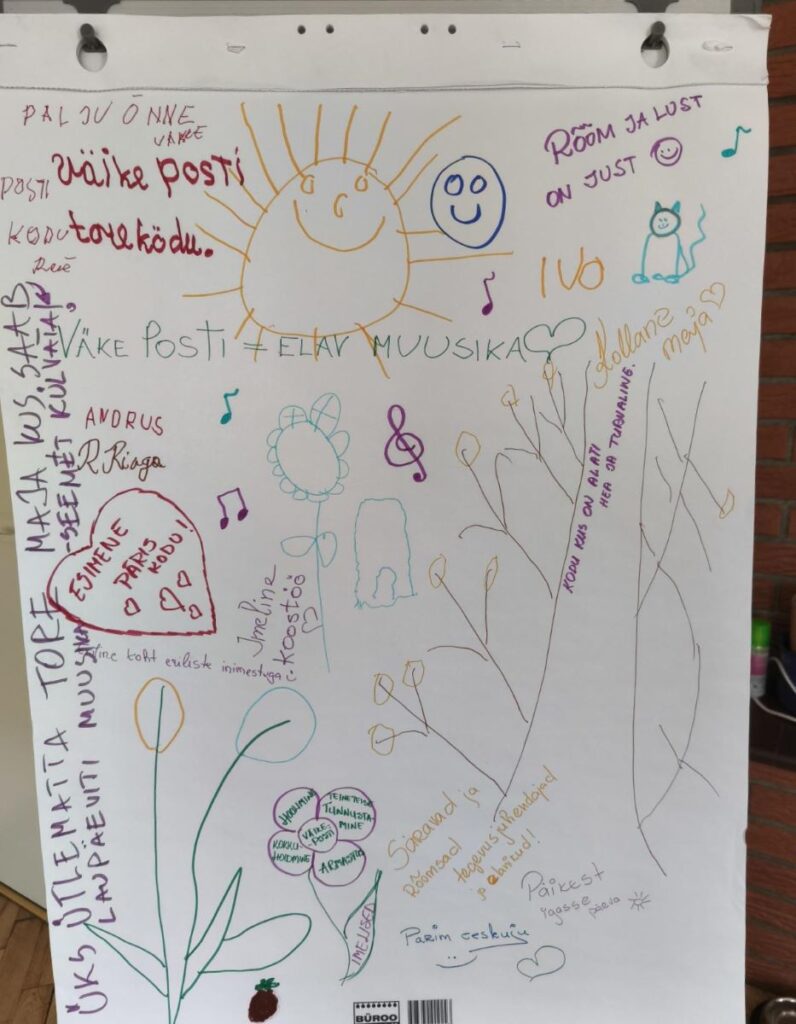 PALJU ÕNNE
VÄIKE
POSTI
väike posti
KODU
tore kodu.
RÕÕM JA LUST
ON JUST
IVO
VÄKE POSTI = ELAV MUUSIKA
Kollane
maja
ÜKS ÜTLEMATTA TORE MAJA KUS SAAB
LAUPÄEVITI MUUSIKA-SEEMET KÜLVATA
ANDRUS
R. Riaga
ESIMENE
PÄRIS
KODU!
Imeline
koostöö
koht eriliste inimestega
KODU KUS ON ALATI
HEA JA TURVALINE.
HOOLIMINE
TEINETEISE
TUNNUSTA-
MINE
VÄIKE-
POSTI
KOKKU-
HOIDMINE
ARMASTUS
IMELISED
Säravad ja
rõõmsad
tegevusjuhendajad
ja elanikud!
Päikest
igasse
päeva
Parim eeskuju
BÜROO